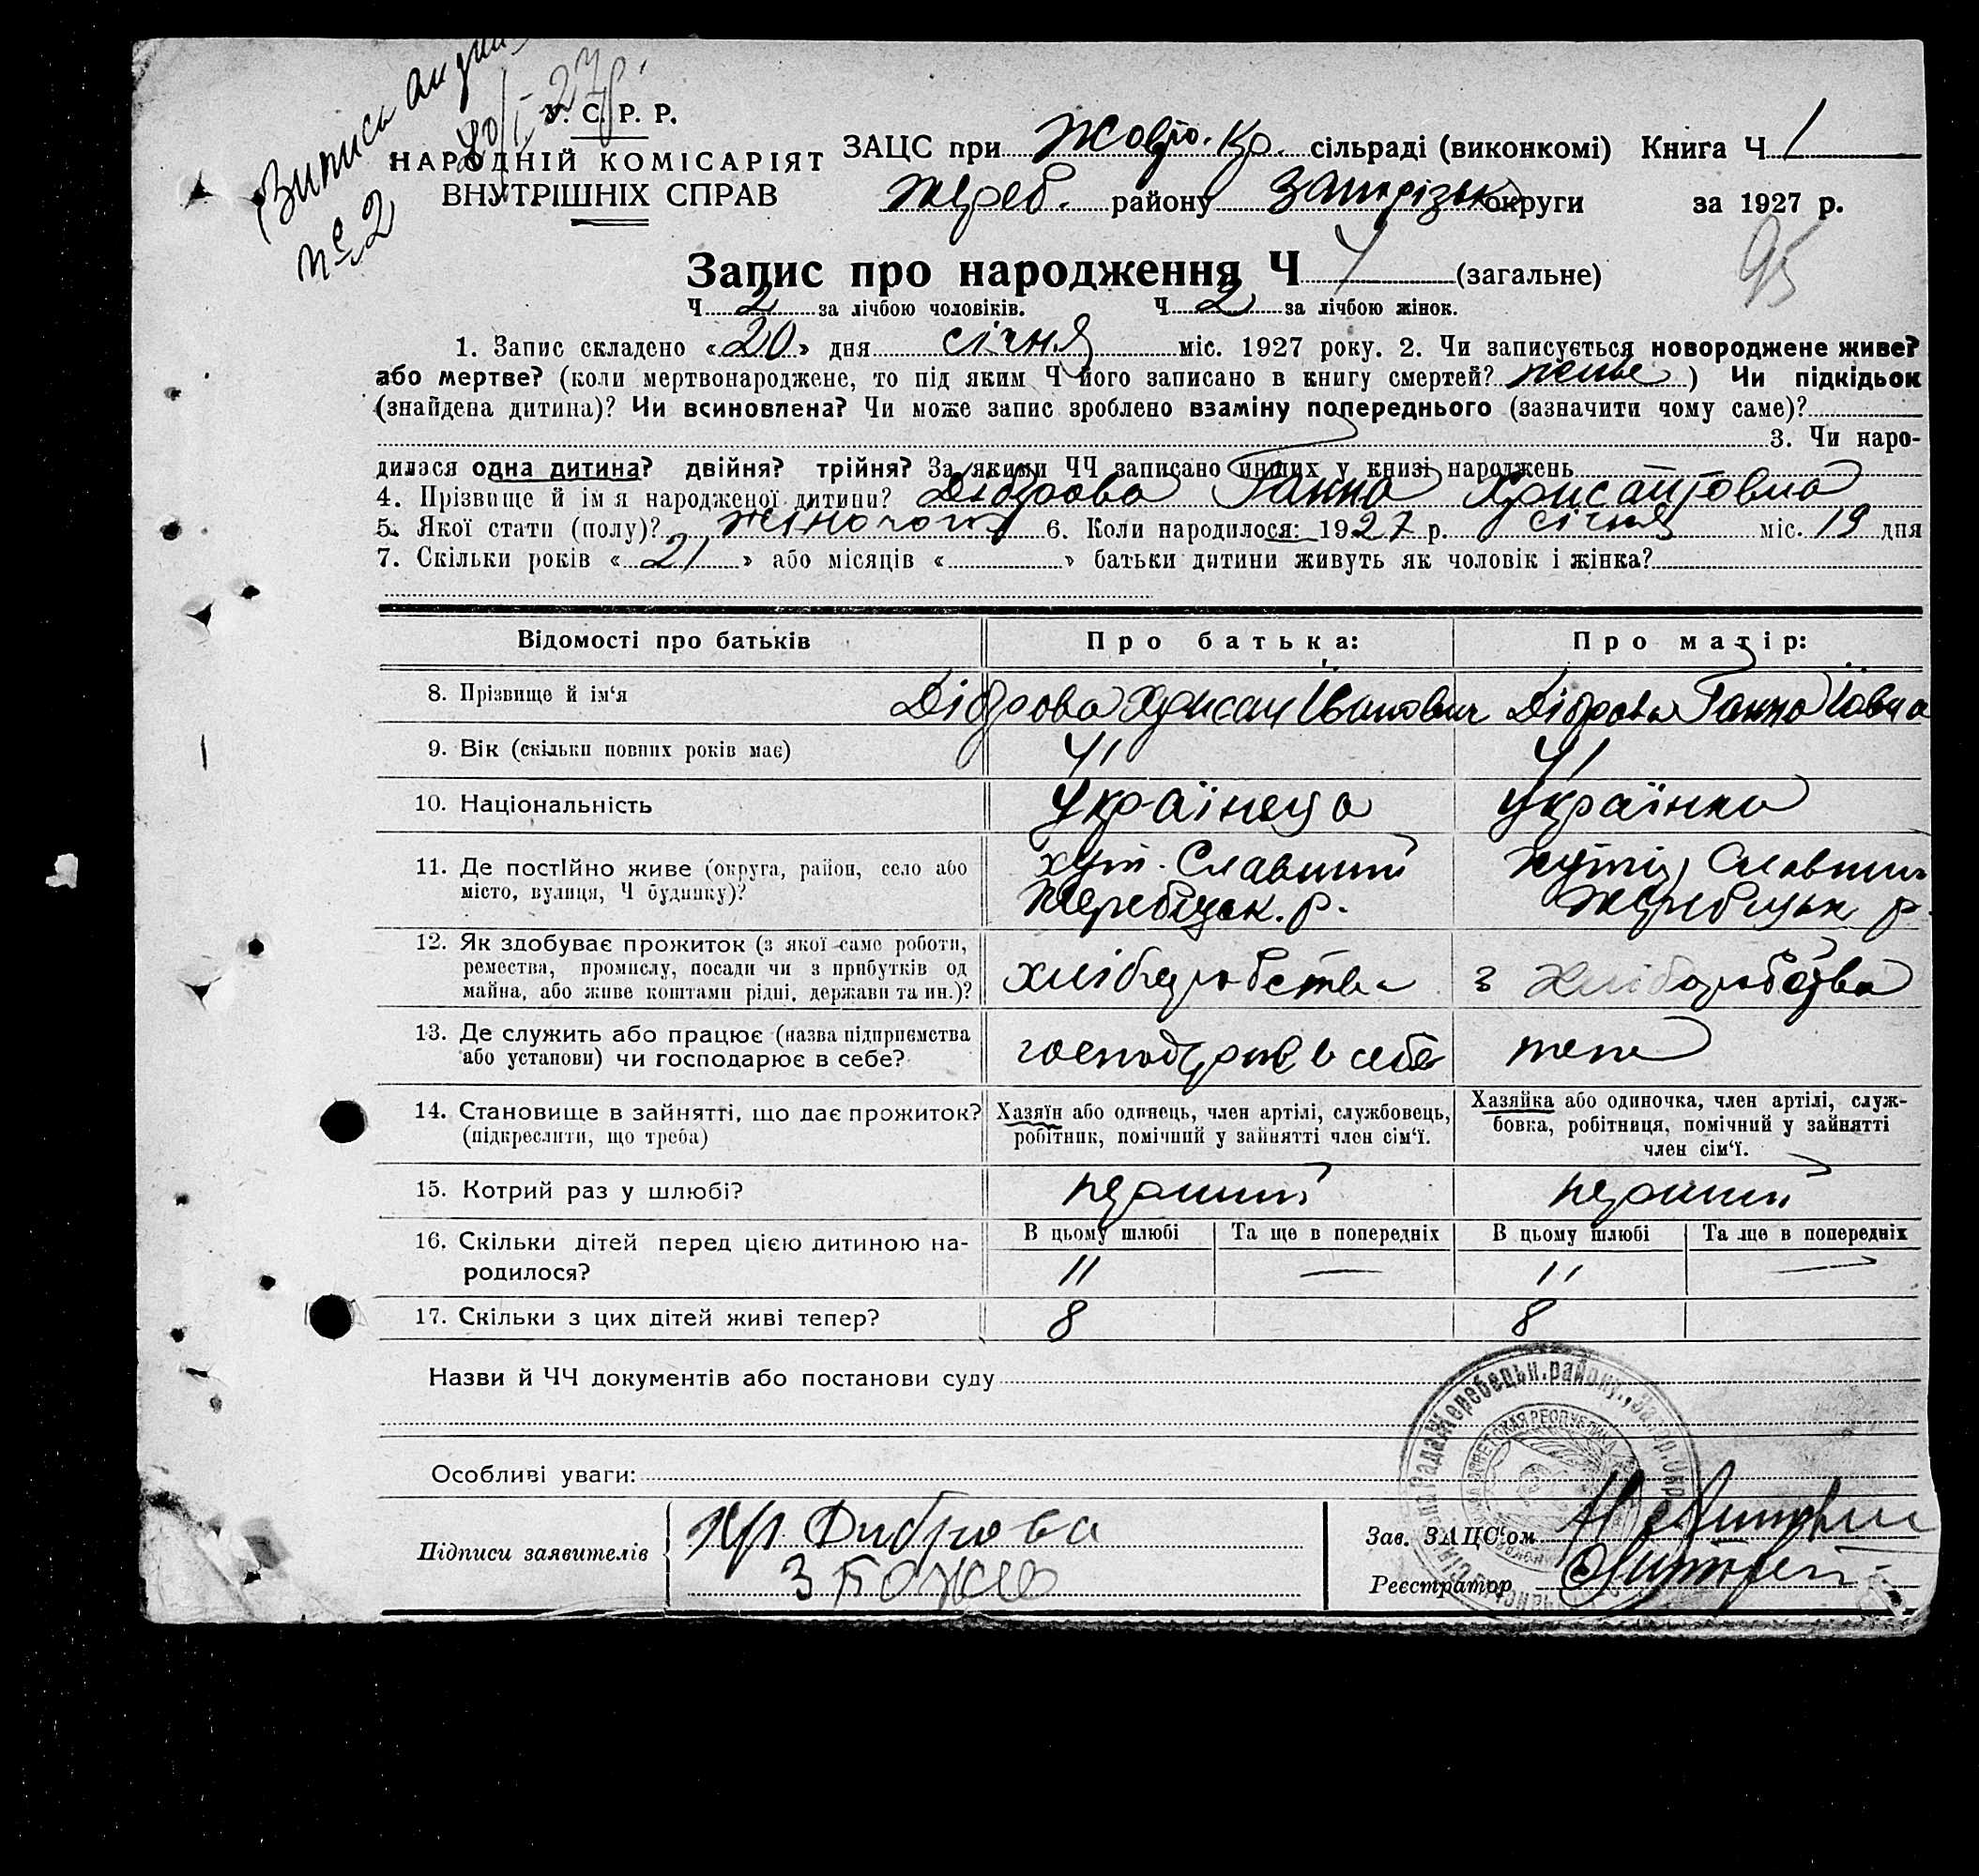 Випись видан
№ 2 20/I-27р.
У. С. Р. Р.
НАРОДНІЙ КОМІСАРІЯТ
ВНУТРІШНІХ СПРАВ
ЗАЦС при Жовто.-Кр. сільраді (виконкомі) Книга Ч 1
Жереб. району Запорізьк округи за 1927 р.
95
Запис про народження Ч 4 (загальне)
Ч 2 за лічбою чоловіків. Ч 2 за лічбою жінок.
1. Запис складено «20» дня січня міс. 1927 року. 2. Чи записується новороджене живе?
або мертве? (коли мертвонароджене, то під яким Ч його записано в книгу смертей?) Чи підкідьок
(знайдена дитина)? Чи всиновлена? Чи може запис зроблено взаміну попереднього (зазначити чому саме)?
3. Чи наро-
дилася одна дитина? двійня? трійня? За якими ЧЧ записано инших у книзі народжень
4. Прізвище й ім я народженої дитини? Діброва Ганна Хрисантовна
5. Якої стати (полу)? жіночої 6. Коли народилося: 1927 р. січня міс. 19 дня
7. Скільки років «21» або місяців « » батьки дитини живуть як чоловік і жінка?
Відомості про батьків Про батька: Про матір:
8. Прізвище й ім‘я Діброва Хрисан Іванович Діброва Ганна Іовна
9. Вік (скільки повних років має) 41 41
10. Національність Українець Українка
11. Де постійно живе (округа, район, село або місто, вулиця, Ч будинку)?
хут. Славний Жеребецьк. р.
хутір Славний Жеребецьк р.
12. Як здобуває прожиток (з якої саме роботи, ремества, промислу, посади чи з прибутків од майна, або живе коштами рідні, держави та ин.)?
хліборобства з хліборобства
13. Де служить або працює (назва підприємства або установи) чи господарює в себе?
господарює в себе теж
14. Становище в зайнятті, що дає прожиток? (підкреслити, що треба)
Хазяїн або одинець, член артілі, службовець, робітник, помічний у зайнятті член сім‘ї.
Хазяйка або одиночка, член артілі, служ-бовка, робітниця, помічний у зайнятті член сім‘ї.
15. Котрий раз у шлюбі? перший перший
16. Скільки дітей перед цією дитиною на-родилося?
В цьому шлюбі Та ще в попередніх В цьому шлюбі Та ще в попередніх
11 — 11 —
17. Скільки з цих дітей живі тепер? 8 8
Назви й ЧЧ документів або постанови суду
Особливі уваги:
Підписи заявителів Хр Диброва
Зав. ЗАЦС‘ом
Реєстратор